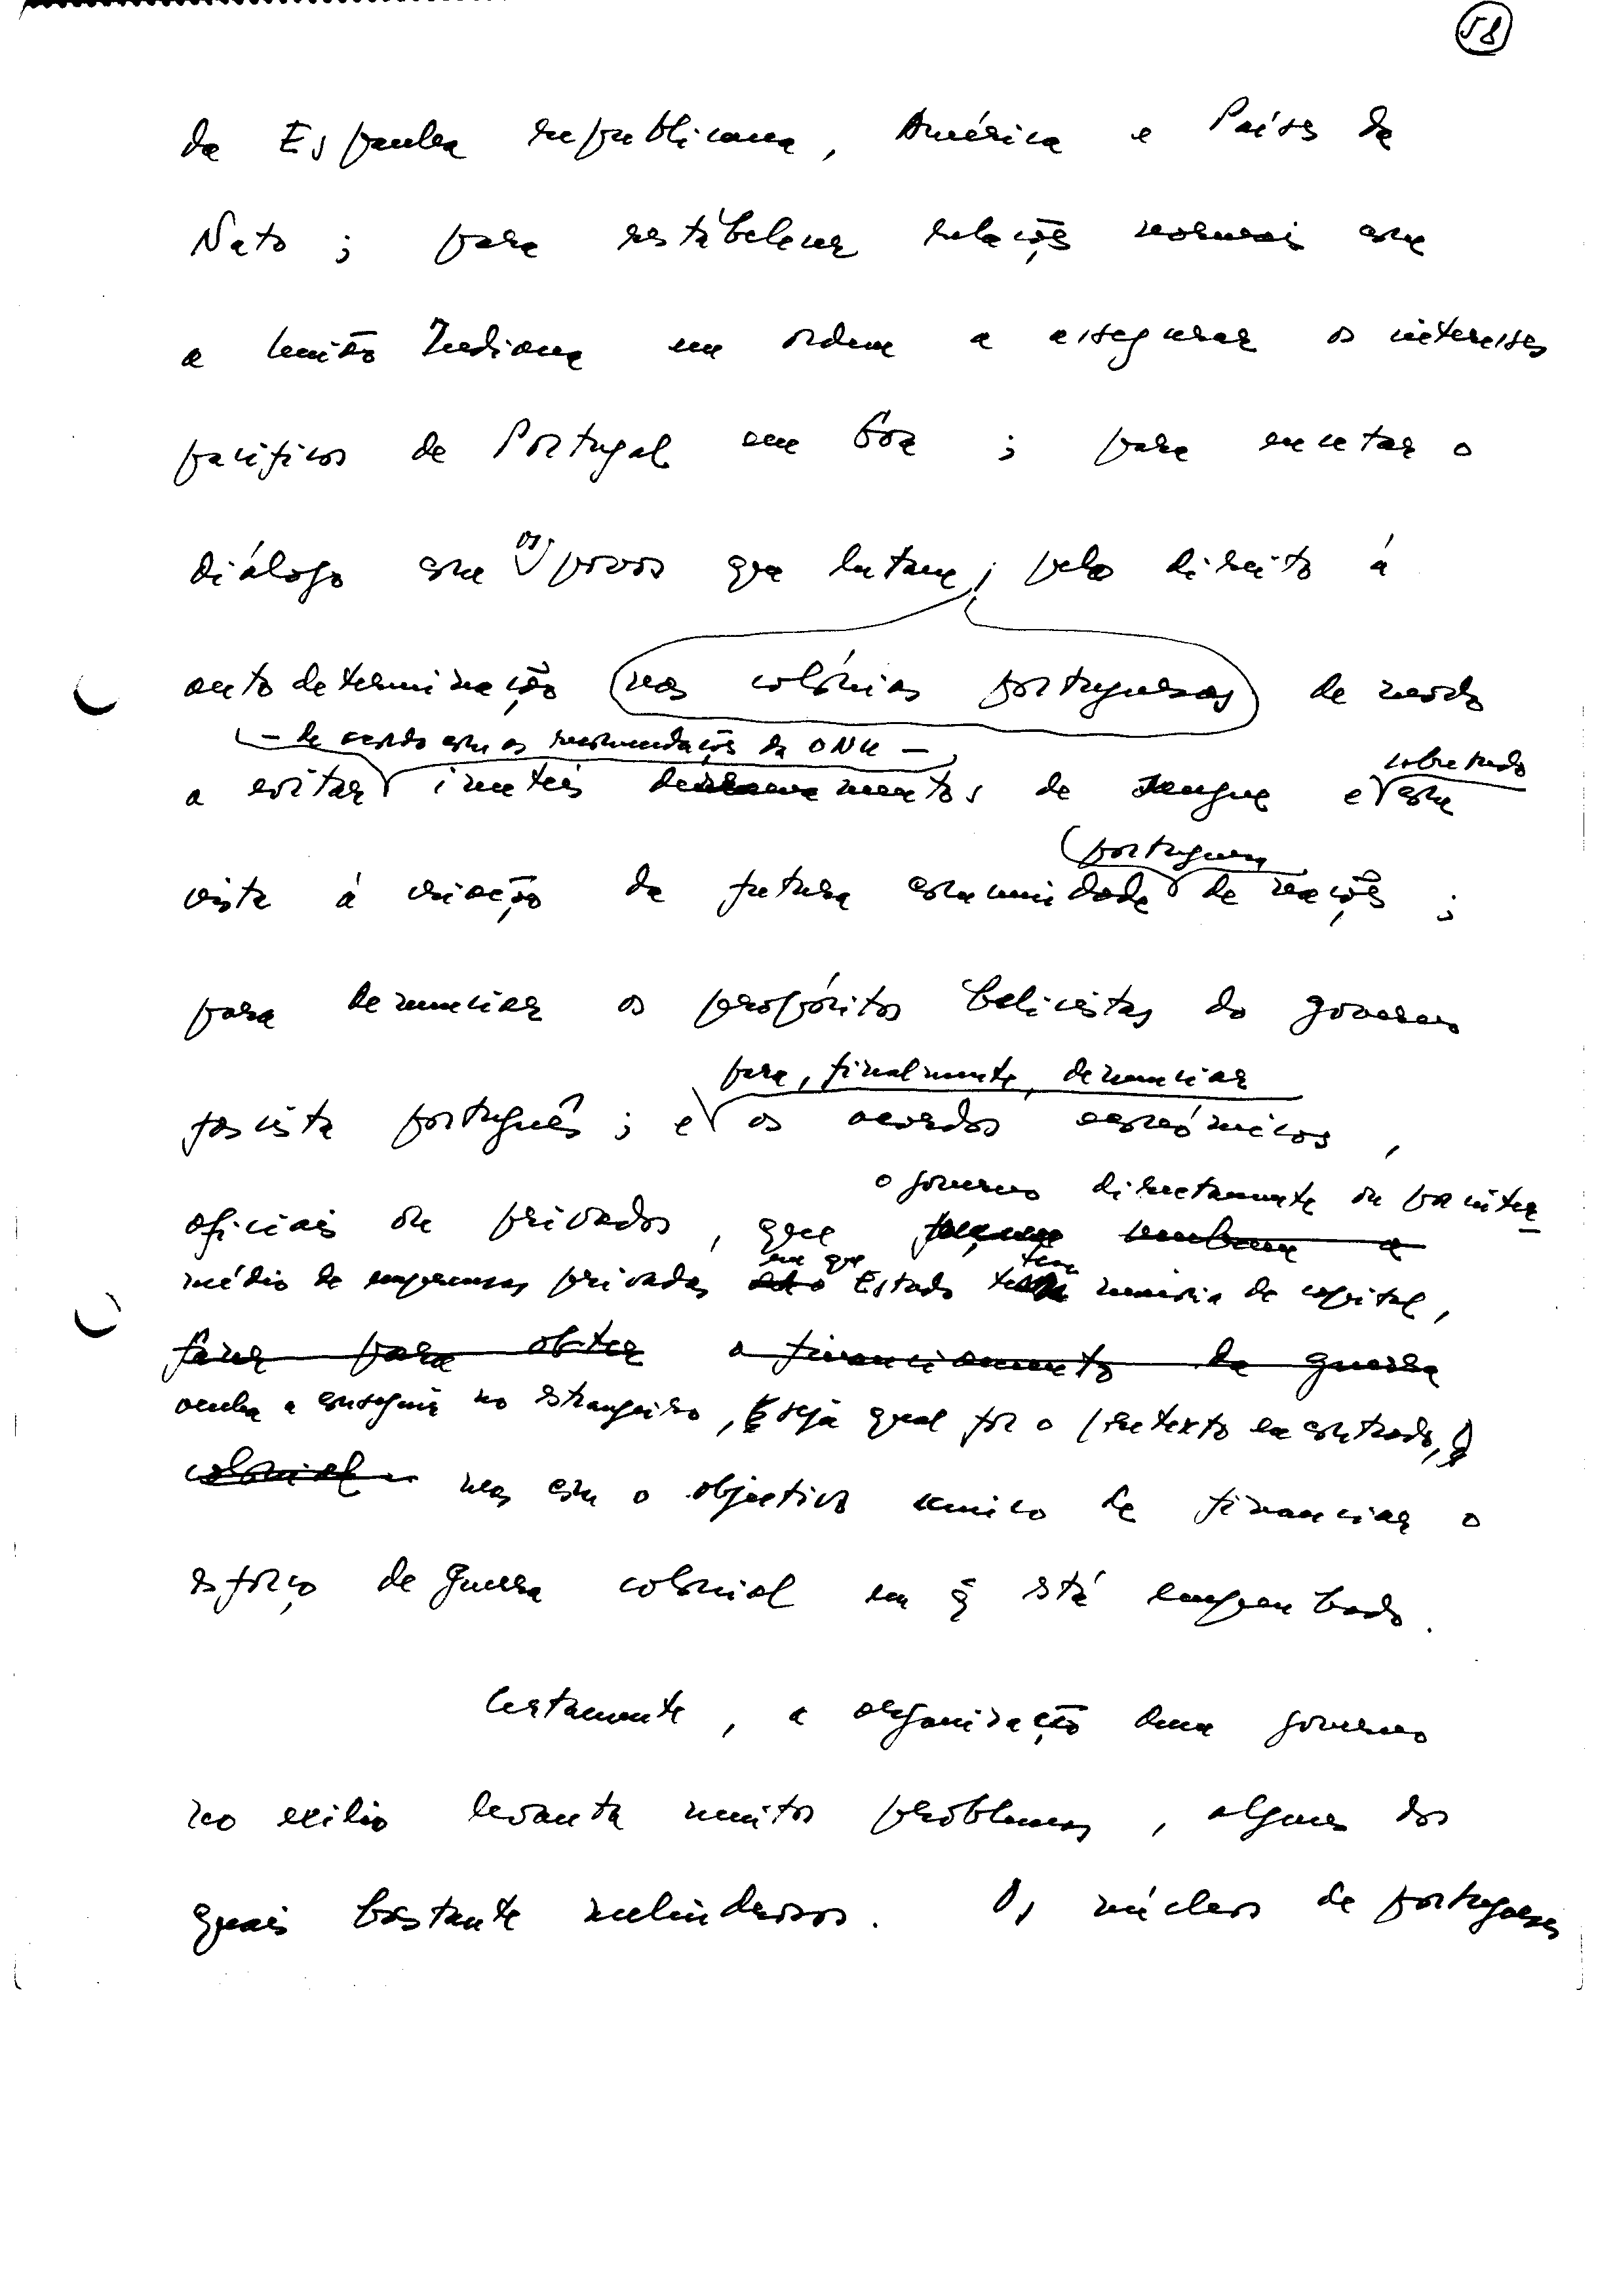 58
da Espanha republicana, América e Países da
Nato; para restabelecer relações normais com
a União Indiana em ordem a assegurar os interesses
pacíficos de Portugal em Goa; para encetar o
diálogo com os povos que lutam, pelo direito à
autodeterminação nas colónias portuguesas de modo
- de acordo com as recomendações da ONU -
sobretudo
a evitar inúteis derramamentos de sangue e com
portuguesa
vista à criação da futura comunidade de nações;
para denunciar os propósitos belicistas do governo
para, finalmente, denunciar
fascista português; e os acordos económicos,
o governo directamente ou por inter
oficiais ou privados, que
em que tem
médio de empresas privadas o Estado maioria de capital,
fazer para obter o financiamento da guerra
venha a conseguir no estrangeiro, seja qual for o pretexto encontrado,
colonial. mas com o objectivo único de financiar o
esforço de guerra colonial em q̃ está empenhado.
Certamente, a organização dum governo
no exílio levanta muitos problemas, alguns dos
quais bastante melindrosos. Os núcleos de portugueses